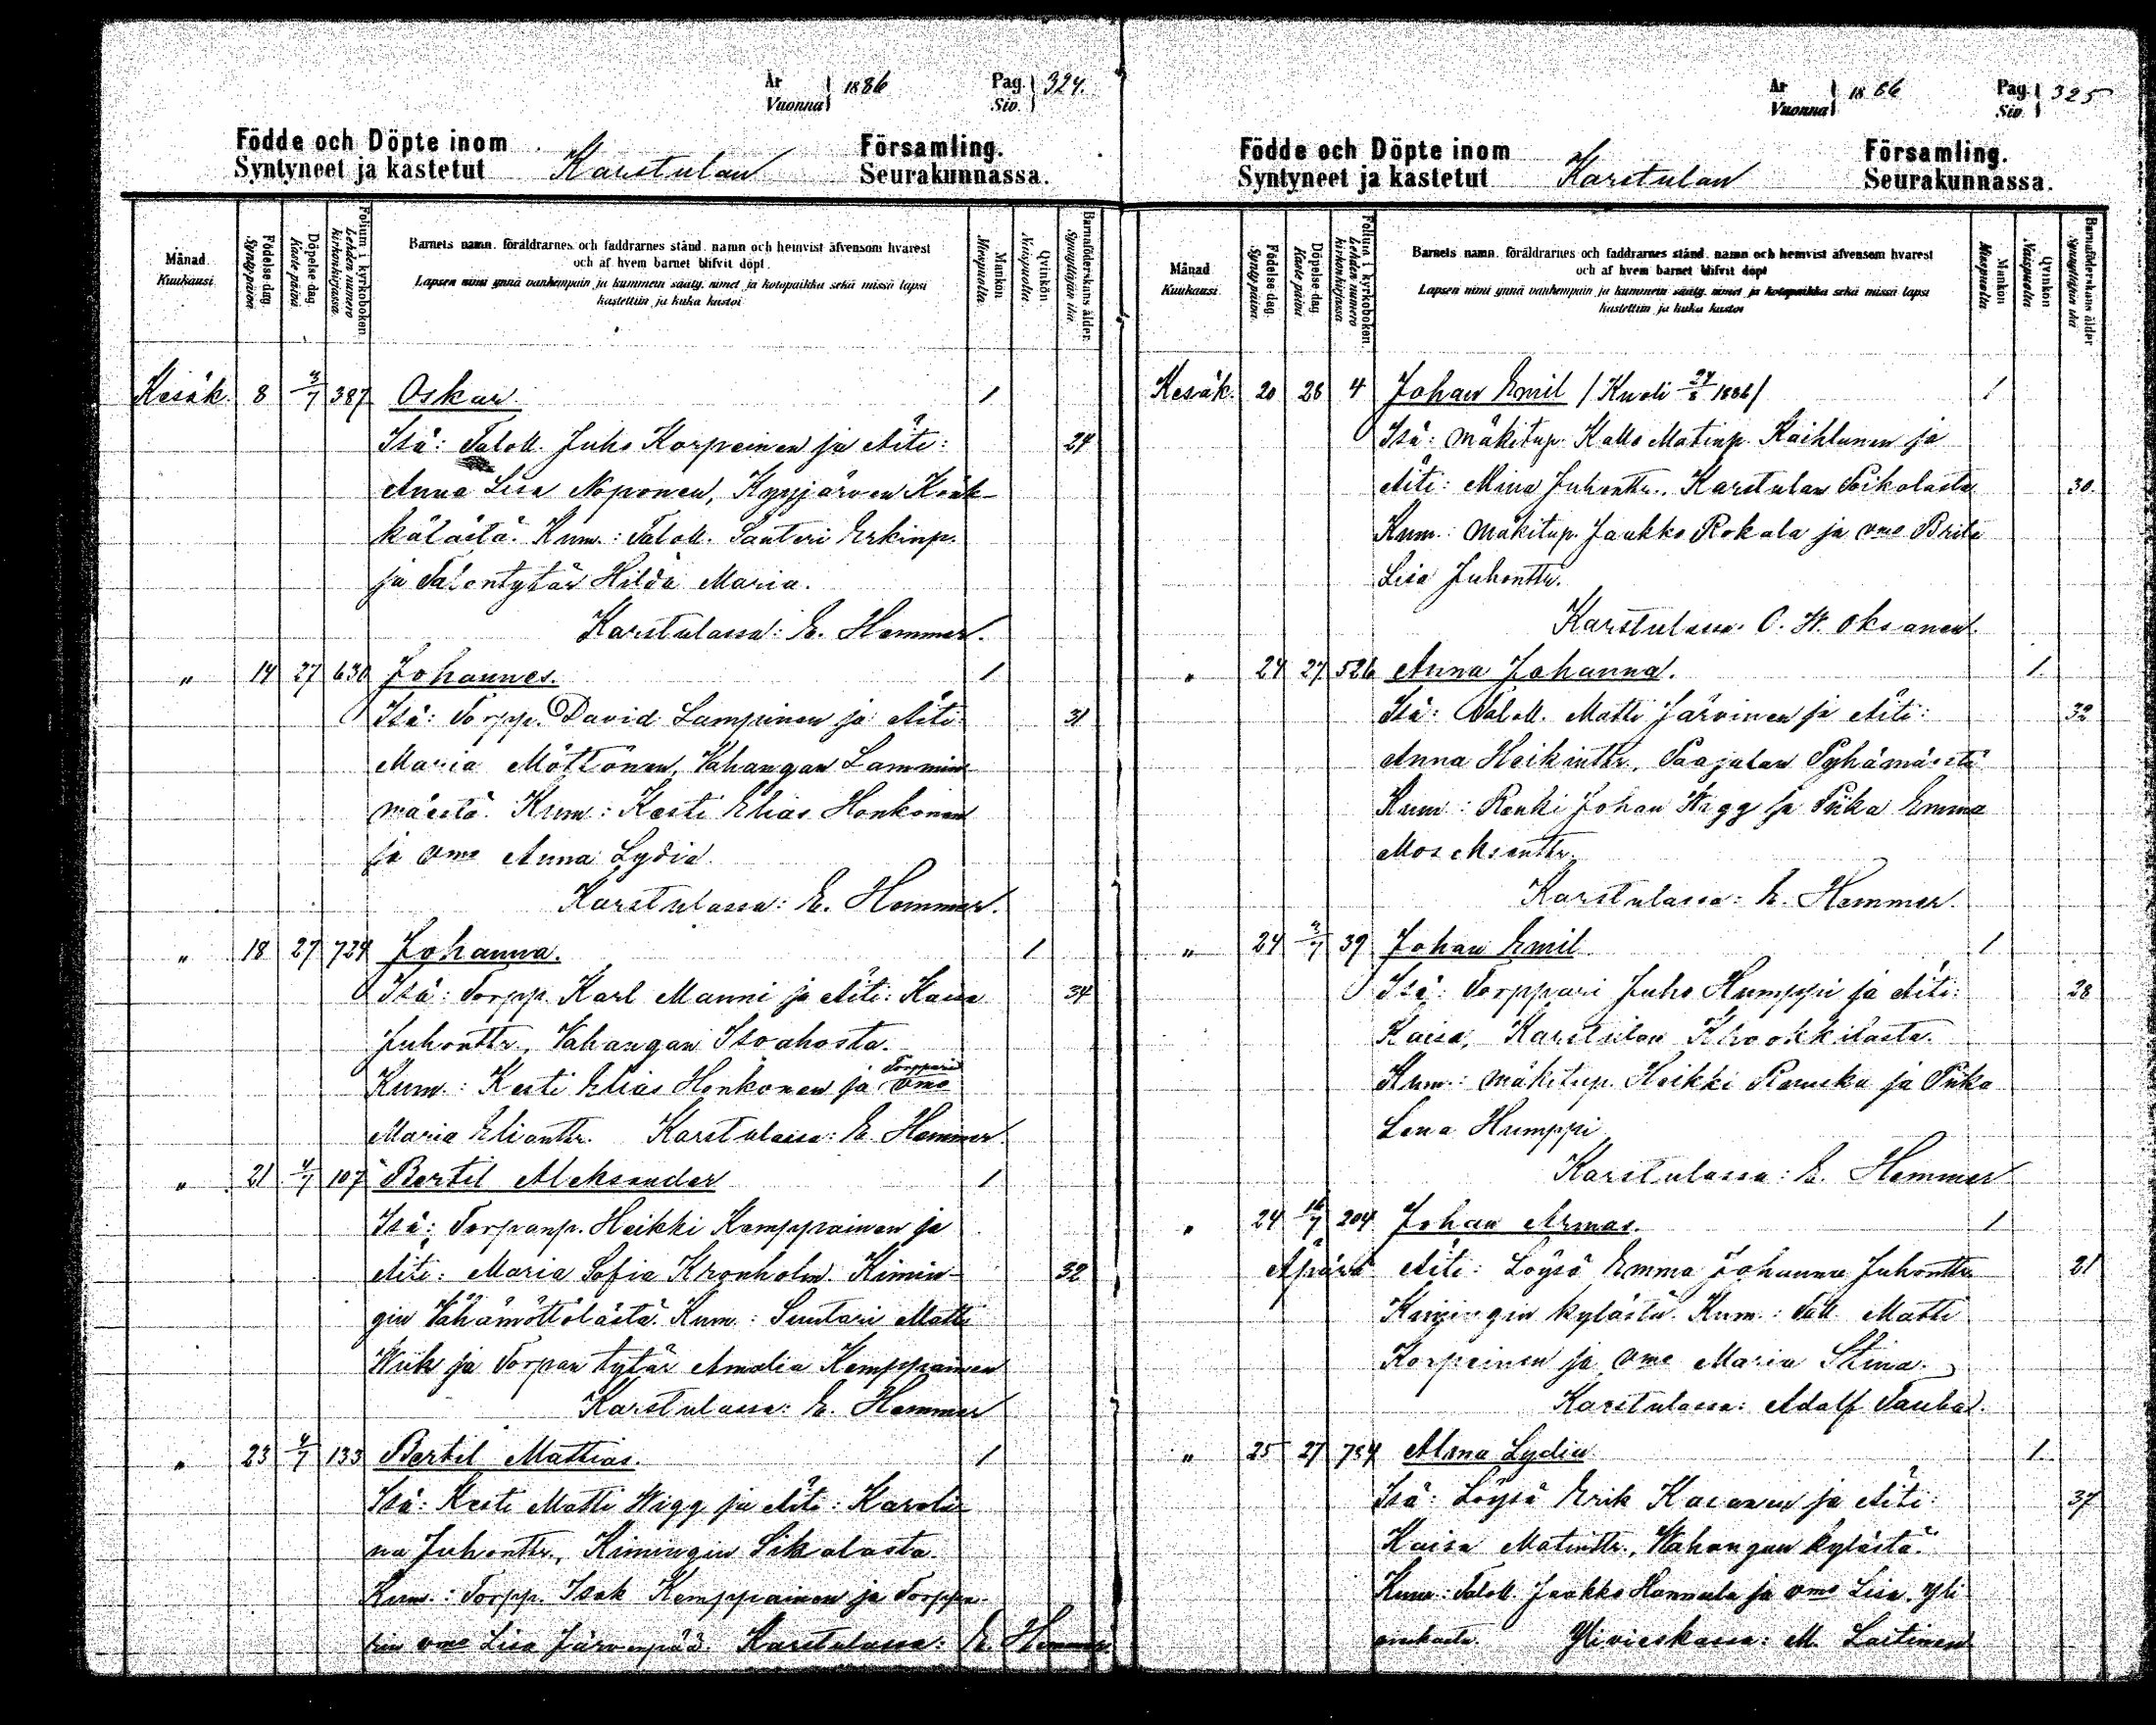 År Vuonna 1886 Pag. Siv. 324.
Födde och Döpte inom Församling.
Syntyneet ja kastetut Karstulan Seurakunnassa.
Månad Kuukausi
Födelse-dag Syntypäivä
Döpelse-dag Kastepäivä
Folium i kyrkoboken. Lehden numero kirkonkirjassa
Barnets namn, föräldrarnes och faddrarnes stånd, namn och hemvist äfvensom hvarest
och af hvem barnet blifvit döpt.
Lapsen nimi ynnä vanhempain ja kummein sääty, nimet ja kotopaikka sekä missä lapsi
kastettiin ja kuka kastoi
Mankön Miespuolta.
Qvinkön Naispuolta.
Barnaföderskans ålder. Synnyttäjän ikä
Kesäk. 8 3/7 387 Oskar 1
Isä: Taloll. Juho Korpeinen ja Äiti: 24
Anna Lisa Noponen, Kyyjärven Könk-
kälästä. Kum.: Taloll. Santeri Erkinp.
ja Talontytär Hilda Maria.
Karstulassa: E. Hemmer.
" 14 27 630 Johannes. 1
Isä: Torpp. David Lampinen ja Äiti 31
Maria Möttönen, Vahangan Lammin-
mäestä. Kum: Kesti Elias Honkonen
ja vmo Anna Lydia
Karstulassa: E. Hemmer.
" 18 27 724 Johanna. 1
Isä: Torpp. Karl Manni ja Äiti: Kaisa 34
Juhonttr., Vahangan Isoahosta.
Torpparin
Kum.: Kesti Elias Honkonen ja vmo
Maria Elianttr. Karstulassa: E. Hemmer.
" 21 4/7 107 Bertil Aleksander 1
Isä: Torpanp. Heikki Kemppainen ja
Äiti: Maria Sofia Kronholm. Kimin- 32
gin Vähämöttölästä. Kum.: Suutari Matti
Wiik ja Torpan tytär Amalia Kemppainen
Karstulassa: E. Hemmer
" 23 4/7 133 Bertil Mattias. 1
Isä: Kesti Matti Wigg ja Äiti: Karoli-
na Juhonttr., Kimingin Sikalasta.
Kum.: Torpp. Isak Kemppainen ja Torppa-
rin vmo Lisa Järvenpää. Karstulassa: E. Hemmer
År Vuonna 1886 Pag. Siv. 325
Födde och Döpte inom Församling.
Syntyneet ja kastetut Karstulan Seurakunnassa.
Månad Kuukausi
Födelse-dag. Syntypäivä.
Döpelse-dag Kastepäivä
Folium i kyrkoboken. Lehden numero kirkonkirjassa
Barnets namn, föräldrarnes och faddrarnes stånd, namn och hemvist äfvensom hvarest
och af hvem barnet blifvit döpt
Lapsen nimi ynnä vanhempain ja kummein sääty, nimet ja kotopaikka sekä missä lapsi
kastettiin ja kuka kastoi
Mankön Miespuolta
Qvinkön Naispuolta
Barnaföderskans ålder Synnyttäjän ikä
Kesäk. 20 28 4 Johan Emil /Kuoli 24/8 1886/ 1
Isä: mäkitup. Kalle Matinp. Kaihlanen ja
Äiti: Mina Juhonttr., Karstulan Poikolasta 30.
Kum.: mäkitup. Jaakko Rokala ja vmo Brita
Lisa Juhonttr.
Karstulassa: O. W. Oksanen.
" 24 27 526 Anna Johanna. 1.
Isä: Taloll. Matti Järvinen ja Äiti: 32
Anna Heikinttr., Paajalan Pyhämäestä
Kum: Renki Johan Wigg ja Piika Emma
Karstulassa: E. Hemmer.
" 24 3/7 39 Johan Emil 1
Isä: Torppari Juho Humppi ja Äiti: 28
Kaisa, Karstulan Krookkilasta.
Kum.: mäkitup. Heikki Ranuka ja Piika
Lena Humppi
Karstulassa: E. Hemmer
" 24 16/7 204 Johan Armas. 1
Äpärä Äiti: Löysä Emma Johanna Juhonttr. 21
Kimingin kylästä. Kum.: Tall. Matti
Korpeinen ja vmo Maria Stina.
Karstulassa: Adolf Taube.
" 25 27 754 Alma Lydia 1.
Isä: Löysä Erik Kacanen ja Äiti: 37
Kaisa Matinttr., Wahangan kylästä.
Kum.: Taloll. Jaakko Hannula ja vmo Lisa, Yli
vieskasta. Ylivieskassa: M. Laitinen